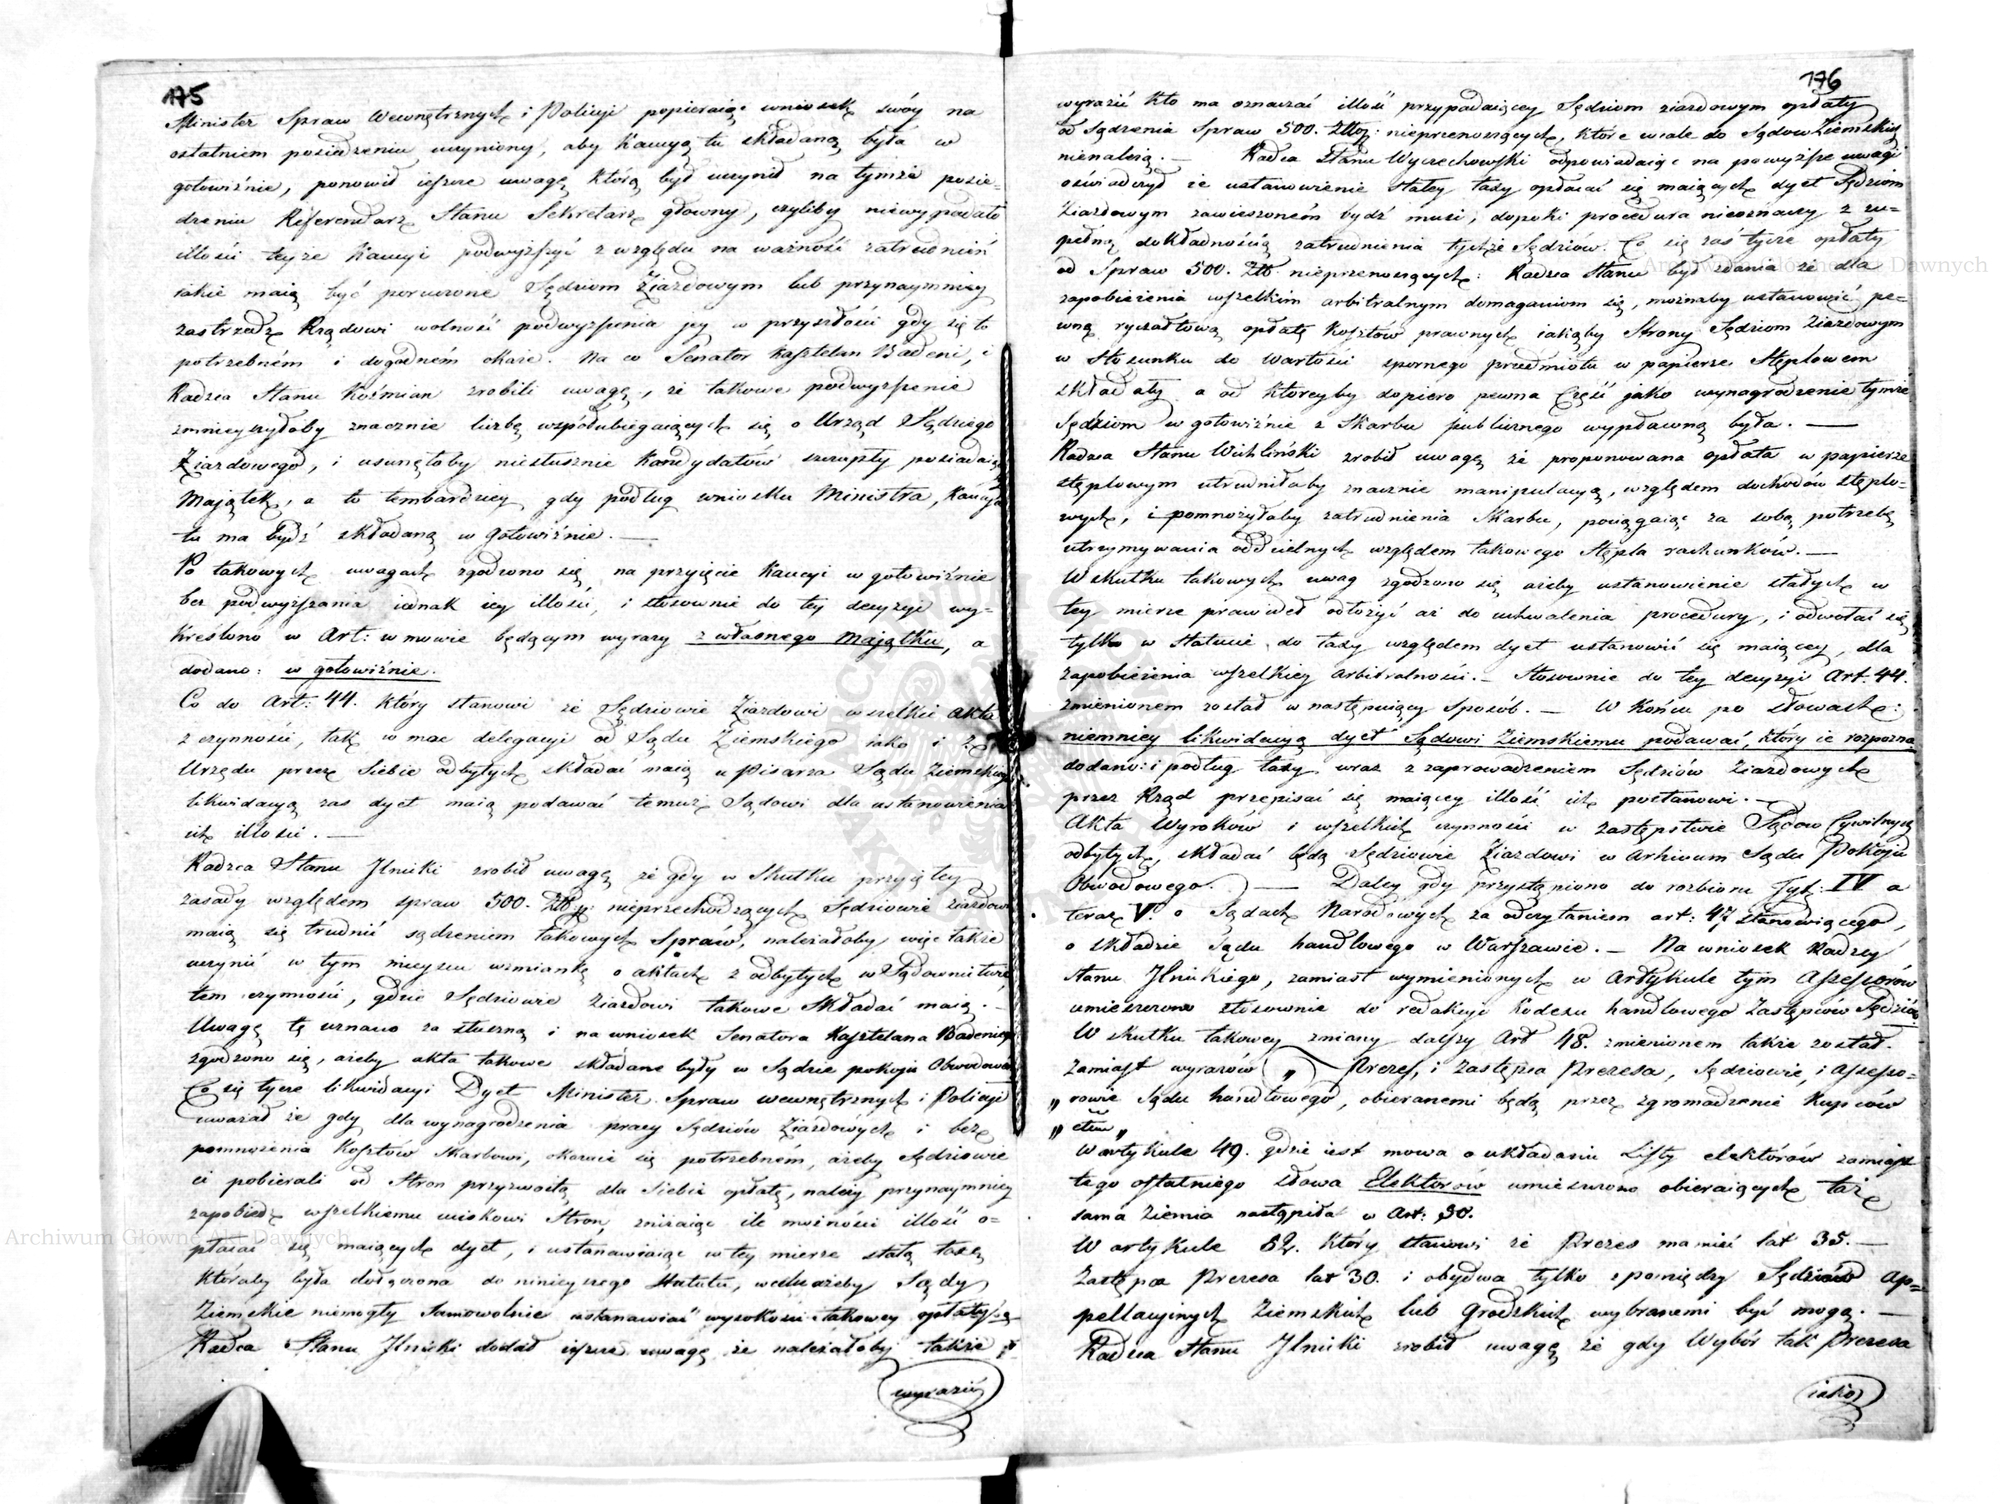 175
Minister Spraw Wewnętrznych i Policyi popieraiąc wniosek swóy na
ostatniem posiedzeniu uczyniony, aby Kaucyą tu składaną była w
gotowiźnie, ponowił ieszcze uwagę którą był uczynił na tymże posie-
dzeniu Referendarz Stanu Sekretarz głowny, czyliby niewypadało
illości teyże Kaucyi podwyższyć z względu na ważność zatrudnień
iakie maią być poruczone Sędziom Ziazdowym lub przynaymniey
zastrzedz Rządowi wolność podwyższenia jey w przyszłości gdy się to
potrzebném i dogodném okaże. Na co Senator Kasztelan Badeni, i
Radzca Stanu Koźmian zrobili uwagę, że takowe podwyższenie
zmnieyszyłoby znacznie liczbę wspołubiegaiących się o Urząd Sędziego
Ziazdowego, i usunęłoby niesłusznie Kandydatów szczupły posiadaią
Maiątek, a to tembardziey gdy podług wniosku Ministra, Kaucya
tu ma bydź składaną w gotowiźnie. —
Po takowych uwagach zgodzono się na przyięcie Kaucyi w gotowiźnie
bez podwyższania iednak iey illości, i stosownie do tey decyzyi wy-
kreślono w Art: w mowie będącym wyrazy z własnego Maiątku, a
dodano: w gotowiźnie.
Co do Art: 44. który stanowi że Sędziowie Ziazdowi wszelkie akta
z czynności, tak w moc delegacyi od Sądu Ziemskiego iako i z
Urzędu przez Siebie odbytych składać maią u Pisarza Sądu Ziemskiego
likwidacyą zaś dyet maią podawać temuż Sądowi dla ustanowienia
ich illości. —
Radzca Stanu Ilnicki zrobił uwagę że gdy w Skutku przyiętey
zasady względem spraw 500. Złłp: nieprzechodzących Sędziowie ziazdowi
maią się trudnić sądzeniem takowych Spraw, należałoby więc także
uczynić w tym mieyscu wzmiankę o aktach z odbytych w Sądownictwie
tem czynności, gdzie Sędziowie ziazdowi takowe składać maią. —
Uwagę tę uznano za słuszną i na wniosek Senatora Kasztelana Badeniego
zgodzono się, ażeby akta takowe składane były w Sądzie pokoju Obwodowym
Co się tycze likwidacyi Dyet Minister Spraw wewnętrznych i Policyi
uważał że gdy dla wynagrodzenia pracy Sędziów Ziazdówych i bez
pomnożenia Kosztów Skarbowi, okazuie się potrzebném, ażeby Sędziowie
ci pobierali od Stron przyzwoitą dla Siebie opłatę, należy przynaymniey
zapobiedz wszelkiemu uciskowi Stron, zniżaiąc ile możności illość o-
płacać się maiących dyet, i ustanawiaiąc w tey mierze stałą taxę
któraby była dołączona do ninieyszego Statutu, w celu ażeby Sądy
Ziemskie niemogły samowolnie ustanawiać wysokości takowey opłaty.
Radca Stanu Ilnicki dodał ieszcze uwagę że należałoby także
wyrazić
176
wyrazić kto ma oznaczać illość przypadaiącey Sędziom ziazdowym opłaty
od Sądzenia Spraw 500. Złłp: nieprzenoszących, które wcale do Sądow Ziemskich
nienależą. — Radca Stanu Wyczechowski odpowiadaiąc na powyższe uwagi
oświadczył że ustanowienie stałey taxy opłacać się maiących dyet Sędziom
Ziazdowym zawieszoném bydź musi, dopoki procedura nieoznaczy z zu-
pełną dokładnością zatrudnienia tychże Sędziów. Co się zaś tycze opłaty
od Spraw 500. Złł. nieprzenoszących: Radzca Stanu był zdania że dla
zapobieżenia wszelkim arbitralnym domaganiom się, możnaby ustanowić pe-
wną ryczałtową opłatę Kosztów prawnych iakąby Strony Sędziom Ziazdowym
w Stosunku do wartości spornego przedmiotu w papierze Stęplowem
składały a od którcyby dopiero pewna Część jako wynagrodzenie tymże
Sędziom w gotowiźnie z Skarbu publicznego wypłacaną była. —
Radzca Stanu Wichliński zrobił uwagę że proponowana opłata w papierze
stęplowym utrudniłaby znacznie manipulacyą, względem dochodów stęplo-
wych, i pomnożyłaby zatrudnienia Skarbu, pociągaiąc za sobą potrzebę
utrzymywania oddzielnych względem takowego Stępla rachunków. —
W skutku takowych uwag zgodzono się ażeby ustanowienie stałych w
tey mierze prawideł odłożyć aż do uchwalenia procedury, i odwołać się
tylko w Statucie do taxy względem dyet ustanowić się maiącey, dla
zapobieżenia wszelkiey arbitralności. — Stosownie do tey decyzyi Art. 44.
zmienionem został w następuiący Sposób. — W Końcu po słowach:
niemniey likwidacyą dyet Sądowi Ziemskiemu podawać, który ie rozpozna
dodano: i podług taxy wraz z zaprowadzeniem Sędziów Ziazdowych
przez Rząd przepisać się maiącey illość ich postanowi. —
Akta Wyroków i wszelkich czynności w zastępstwie Sądow Cywilnych
odbytych, składać będą Sędziowie Ziazdowi w Archivum Sądu Pokoju
Obwodowego. — Daley gdy przystąpiono do rozbioru Tyt: IV a
teraz V. o Sądach Narodowych za odczytaniem art: 47 stanowiącego,
o składzie Sądu handlowego w Warszawie. — Na wniosek Radzcy
Stanu Ilnickiego, zamiast wymienionych w Artykule tym Assessorów
umieszczono stosownie do redakcyi Kodexu handlowego Zastępców Sędziów
W skutku takowey zmiany dalszy Art 48. zmienionem także został.
Zamiast wyrazów „ Prezes, i Zastępca Prezesa, Sędziowie, i Assesso-
„ rowie Sądu handlowego, obieranemi będą przez zgromadzenie Kupców
„ etc „
W artykule 49. gdzie iest mowa o układaniu Listy elektórów zamiast
tego ostatniego słowa Elektorów umieszczono obieraiących taż
sama Ziemia nastąpiła w Art: 50.
W artykule 52. który stanowi że Prezes ma mieć lat 35. —
Zastępca Prezesa lat 30. i obydwa tylko z pomiędzy Sędziów Ap-
pellacyinych Ziemskich lub Grodzkich wybranemi być mogą. —
Radzca Stanu Ilnicki zrobił uwagę że gdy Wybór tak Prezesa
iako